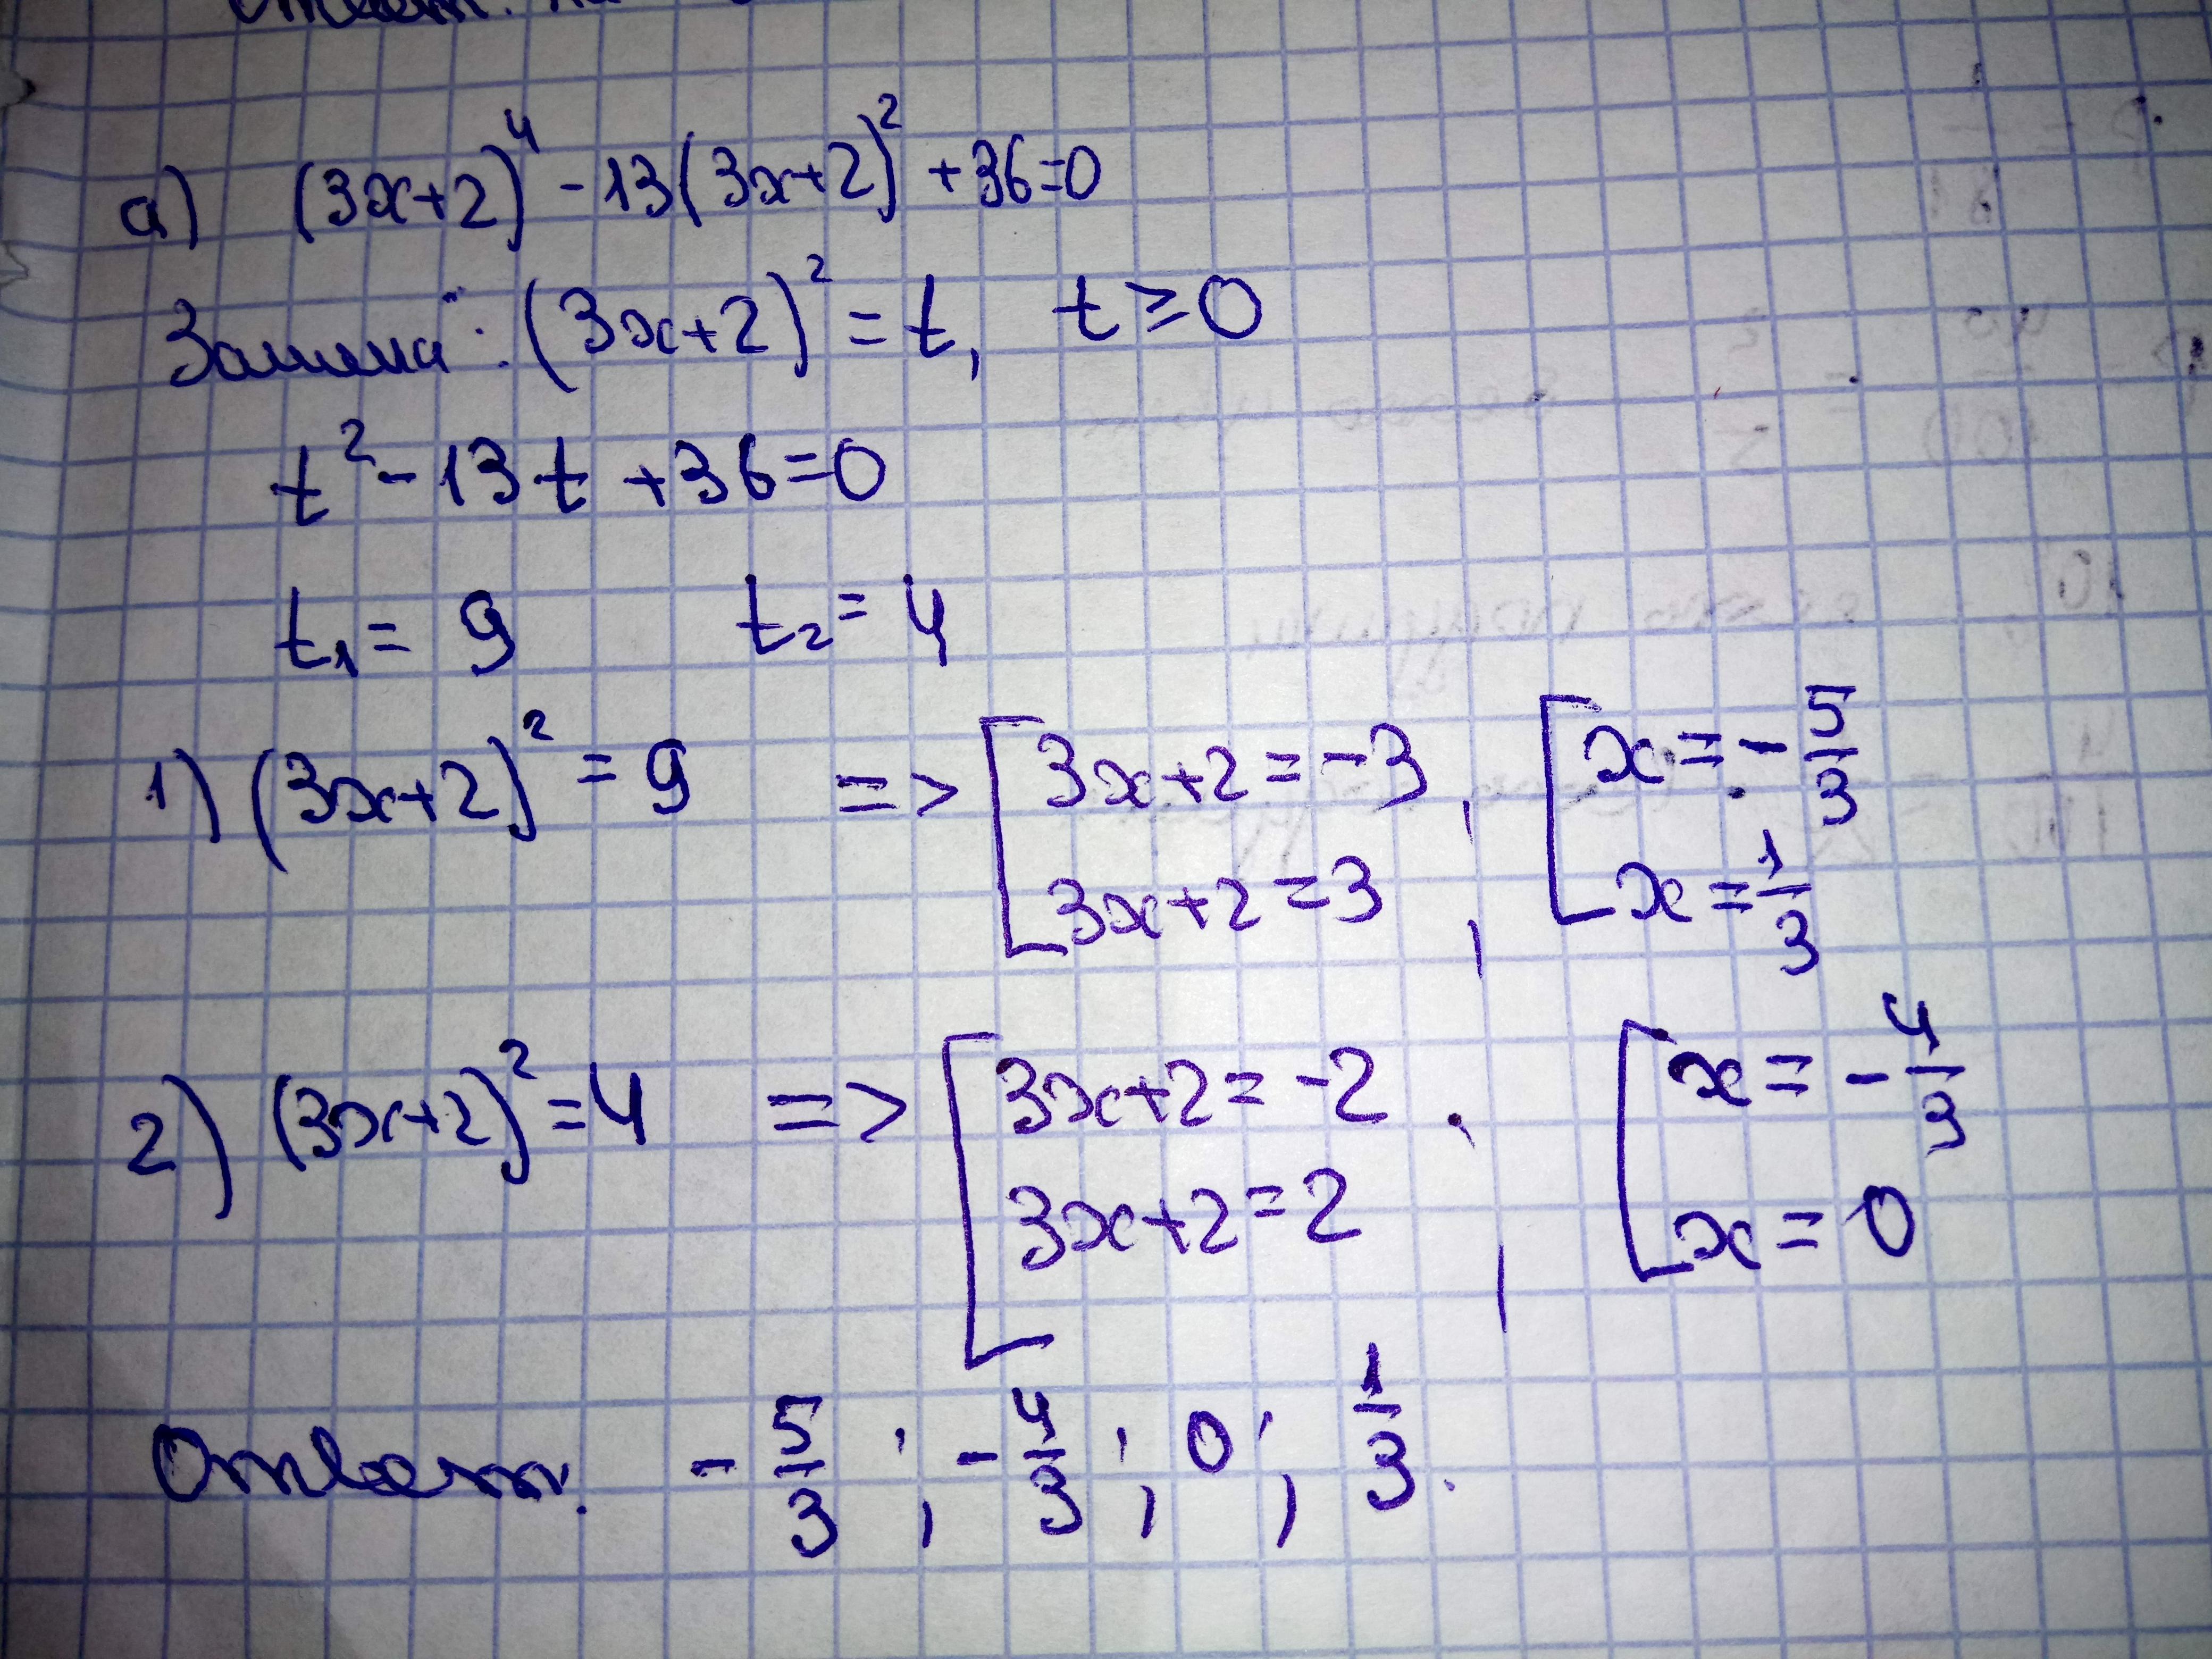 а) (3x+2)⁴ -13(3x+2)² +36=0
Замена: (3x+2)² = t, t ≥ 0
t² - 13t +36=0
t₁ = 9 t₂ = 4
1) (3x+2)² = 9 => [3x+2=-3 ; [x = -5/3
3x+2=3 x = 1/3
2) (3x+2)² = 4 => [3x+2 = -2 ; [x = -4/3
3x+2=2 x = 0
Ответ: -5/3 ; -4/3 ; 0 ; 1/3.